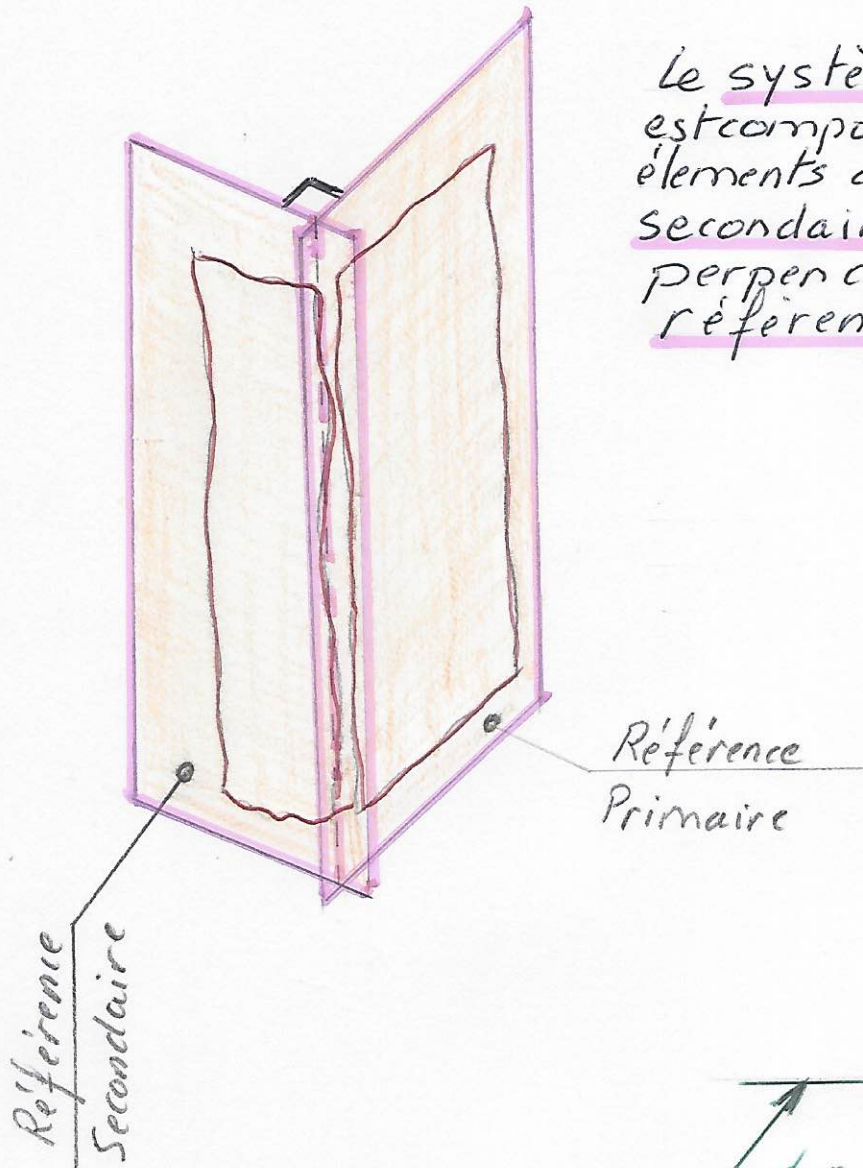 Le systè
est compo
élements d
secondair
perpend
référen
Référence
Primaire
Référence
Secondaire